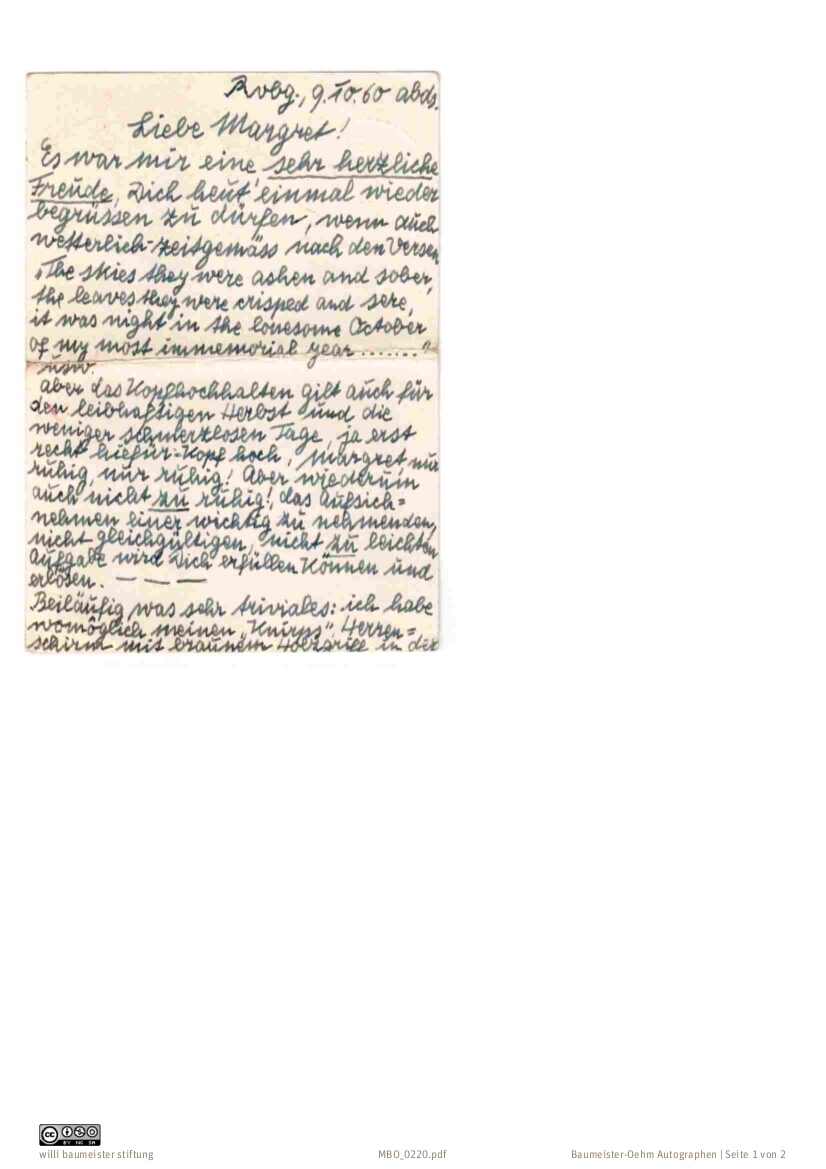 Rvbg., 9.10.60 abds.
Liebe Margret!
Es war mir eine sehr herzliche
Freude, Dich heut' einmal wieder
begrüssen zu dürfen, wenn auch
wetterlich-zeitgemäss nach den Versen
„The skies they were ashen and sober,
the leaves they were crisped and sere,
it was night in the lonesome October
of my most immemorial year......."
usw.
Aber das Kopfhochhalten gilt auch für
den leibhaftigen Herbst und die
weniger schmerzlosen Tage, ja erst
recht hiefür - Kopf hoch, Margret nur
ruhig, nur ruhig! Aber wiederum
auch nicht zu ruhig!, das Aufsich=
nehmen einer wichtig zu nehmenden,
nicht gleichgültigen, nicht zu leichten
Aufgabe wird Dich erfüllen können und
erlösen. — — —
Beiläufig was sehr triviales: ich habe
womöglich meinen „Knirps" Herren=
schirm mit braunem Holzgriff in der
BY NC SA
willi baumeister stiftung
MBO_0220.pdf
Baumeister-Oehm Autographen | Seite 1 von 2